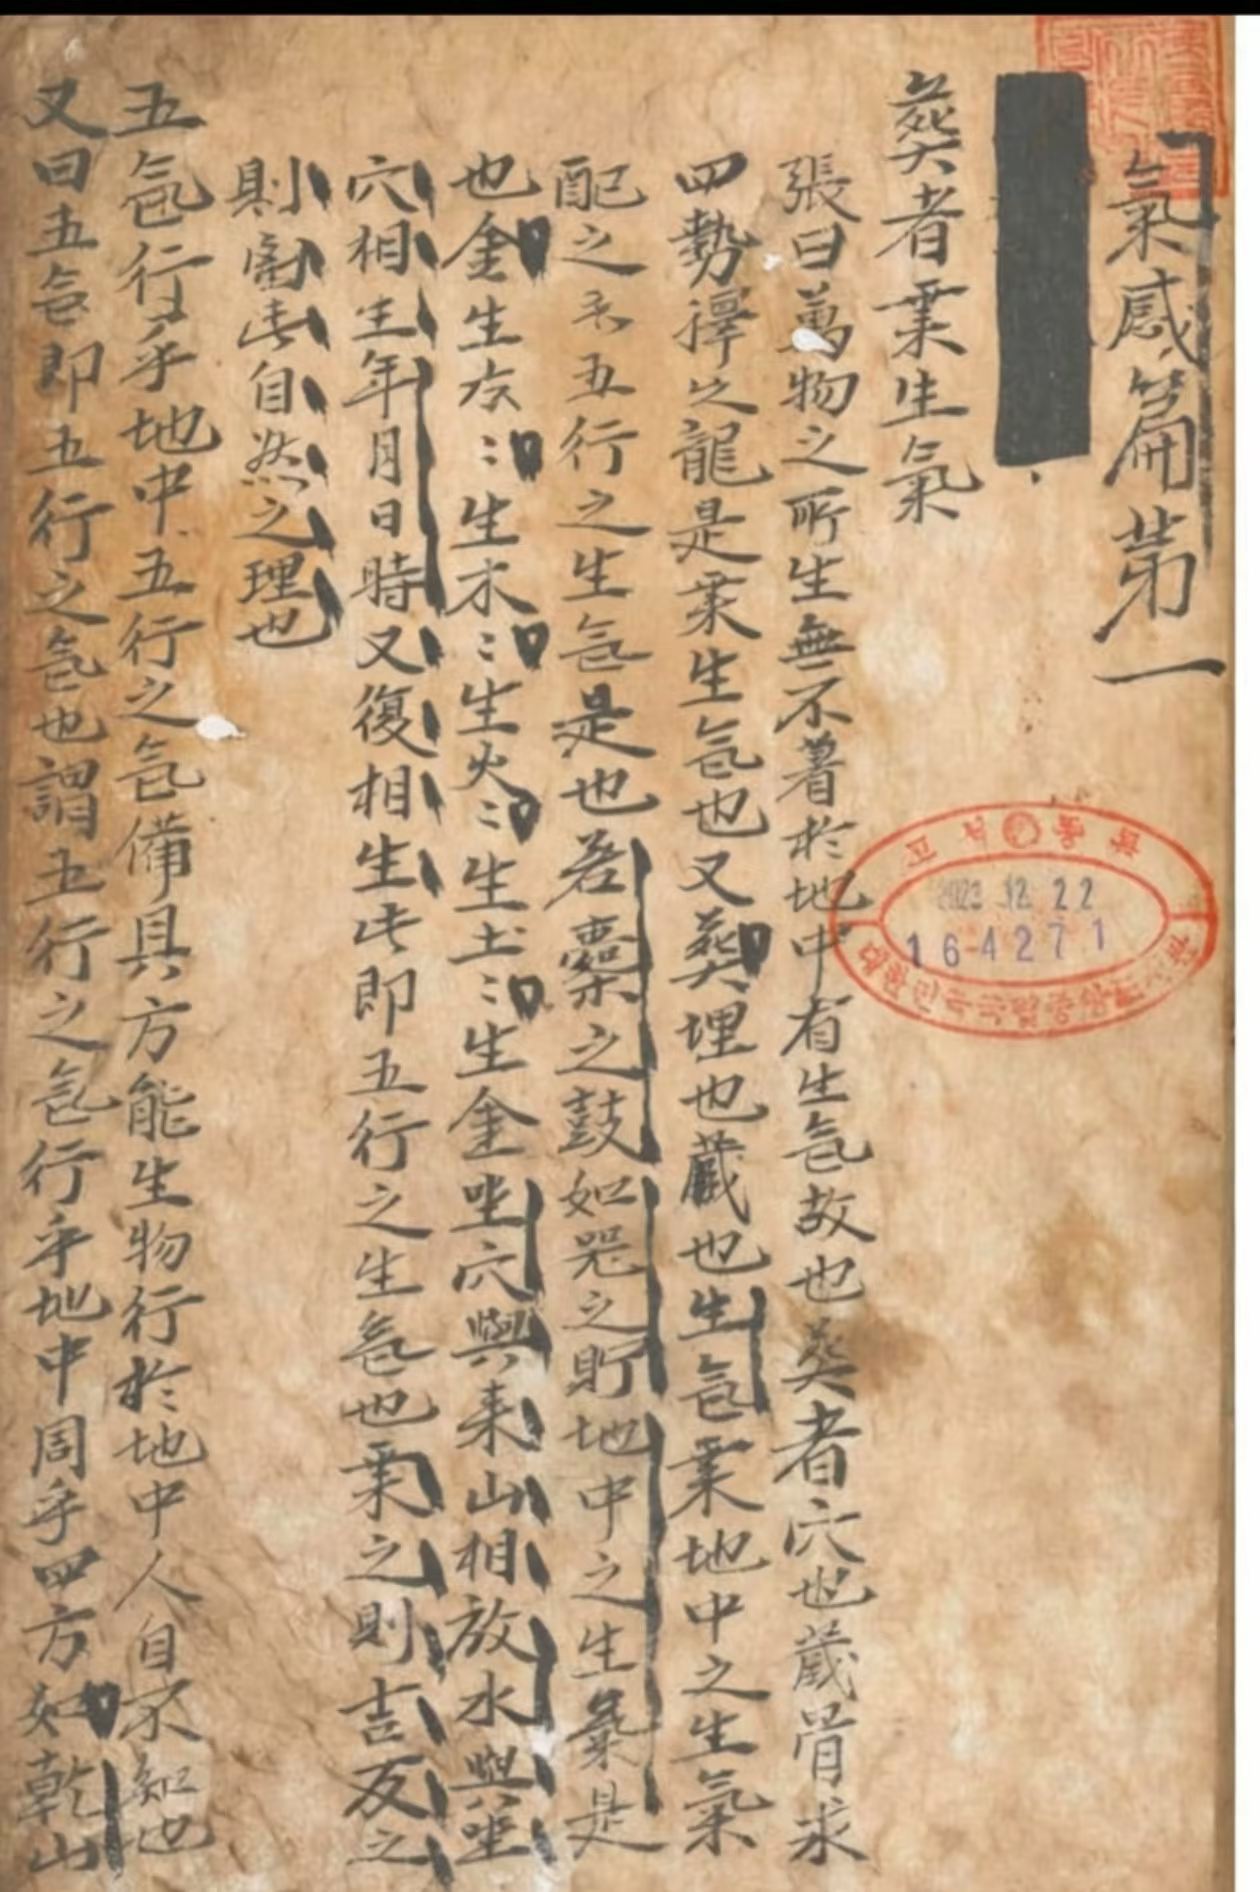 氣感篇第一
葬者乗生氣
張曰萬物之所生無不著於地中有生气故也葬者穴也藏骨求
四勢擇之龍是乗生气也又葬埋也藏也生气乗地中之生氣
配之以五行之生气是也若橐之鼓如器之貯地中之生氣是
也金生水〻生木〻生火〻生土〻生金坐穴與来山相放水與坐
穴相生年月日時又復相生此即五行之生气也乗之則吉反之
則禍此自然之理也
五气行乎地中五行之气備具方能生物行於地中人自不知也
又曰五气即五行之气也謂五行之气行乎地中周乎四方如乾山
2023 12. 22
164271